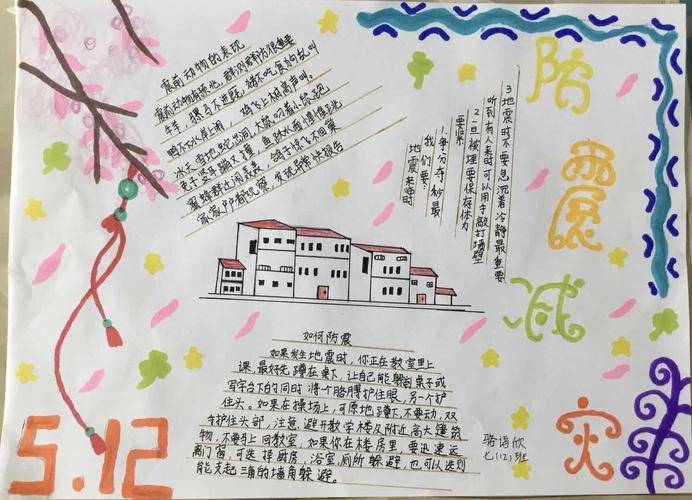 防
震
减
灾
震前动物的表现
震前动物有预兆，群测群防很重要
牛羊骡马不进厩，猪不吃食狗乱叫
鸭不下水岸上闹，鸡飞上树高声叫。
冰天雪地蛇出洞，大鼠叼着小鼠跑
兔子竖耳蹦又撞，鱼跃水面惶惶跳
蜜蜂群迁闹轰轰，鸽子惊飞不回巢
家家户户都观察，发现异常快报告
地震来临时
我们要：
1.争分夺秒最
重要
2.一旦被埋要保存体力
听到有人来时可以用手敲打墙壁
3.地震时不要急沉着冷静最重要
如何防震
如果发生地震时，你正在教室里上
课，最好先蹲在桌下，让自己能躲到桌子或
写字台下的同时将个胳膊护住眼，另一个护
住头。如果在操场上，可原地蹲下，不要动，双
手护住头部，注意避开教学楼及附近高大建筑
物，不要马上回教室，如果你在楼房里，要迅速远
离门窗，可选择厨房，浴室，厕所躲避，也可以选则
能支起三角的墙角躲避。
骆语欣
七(12)班
5.12